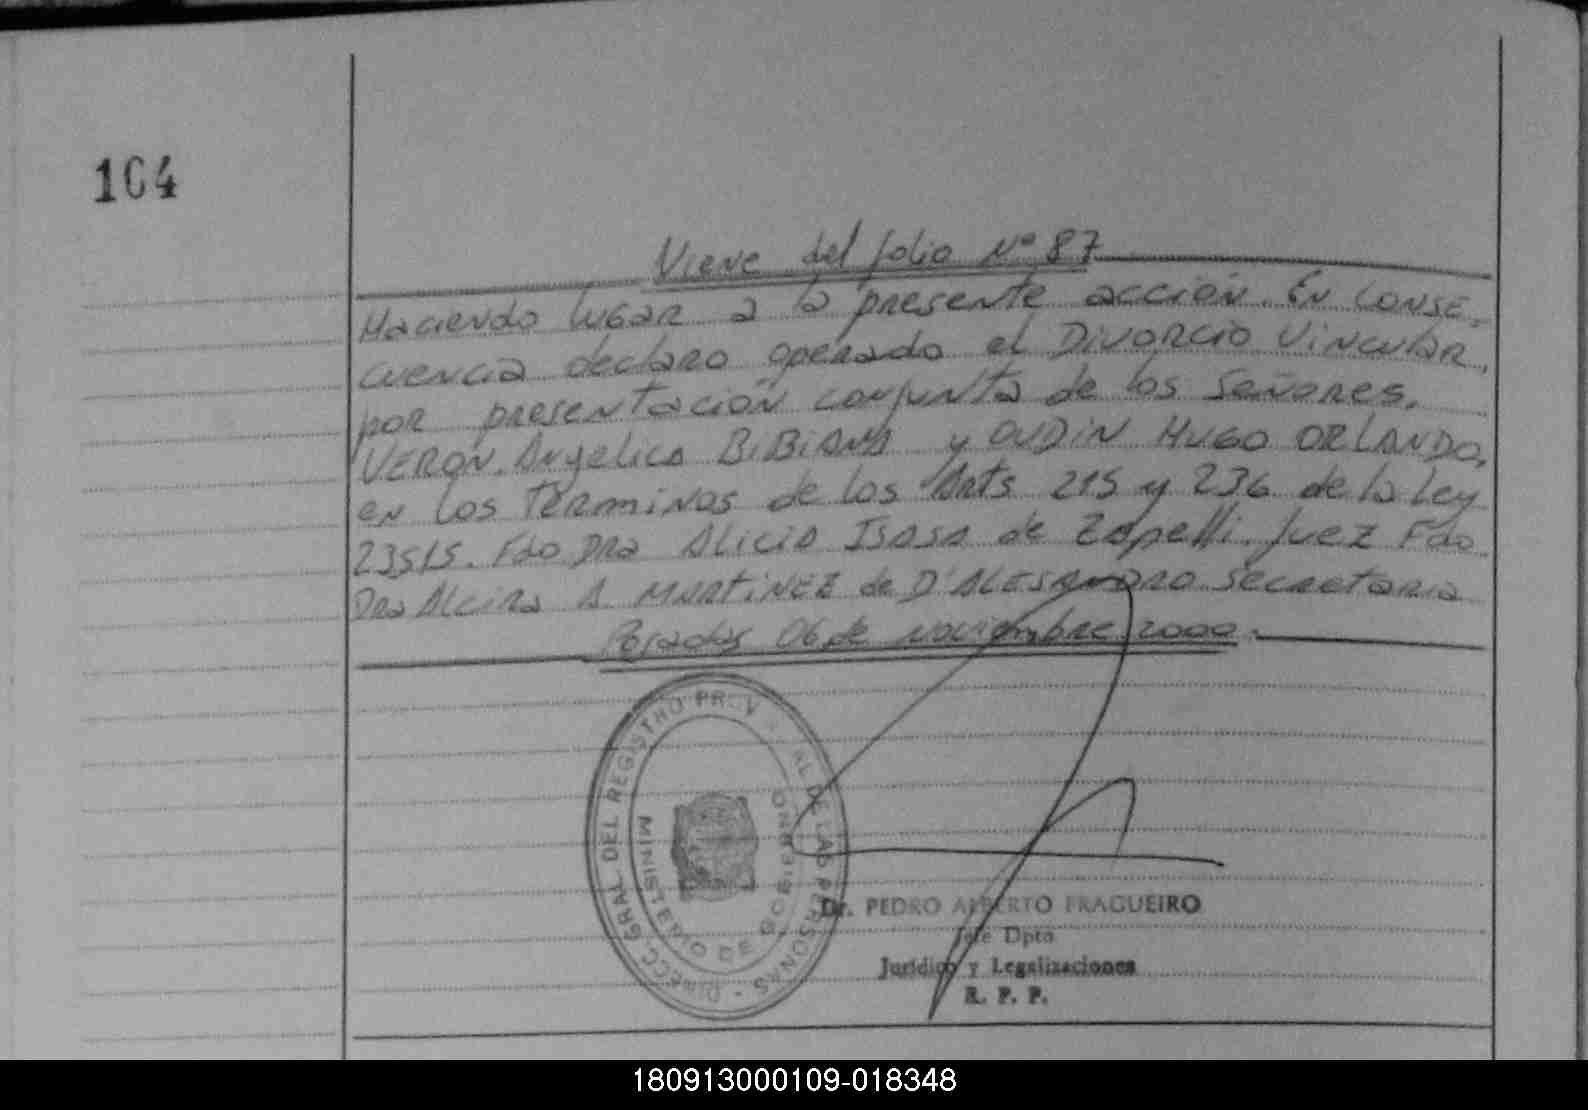 104
Viene del folio Nº 87
Haciendo lugar a la presente acción. En conse-
cuencia declaro operado el Divorcio Vincular,
por presentación conjunta de los Señores.
VERON Angelica BiBiANA y OUDIN HUGO ORLANDO,
en los Terminos de los Arts 215 y 236 de la Ley
23515. Fdo Dra Alicia Isasa de Zapelli. Juez Fdo.
Dra Alcira A MARTINEZ de D'ALESANDRO Secretaria
Posadas 06 de noviembre 2000.
DIRECC. GRAL DEL REGISTRO PROV AL DE LAS PERSONAS -
MINISTERIO DE GOBIERNO
Dr. PEDRO ALBERTO FRAGUEIRO
Jefe Dpto
Jurídico y Legalizaciones
R. P. P.
180913000109-018348